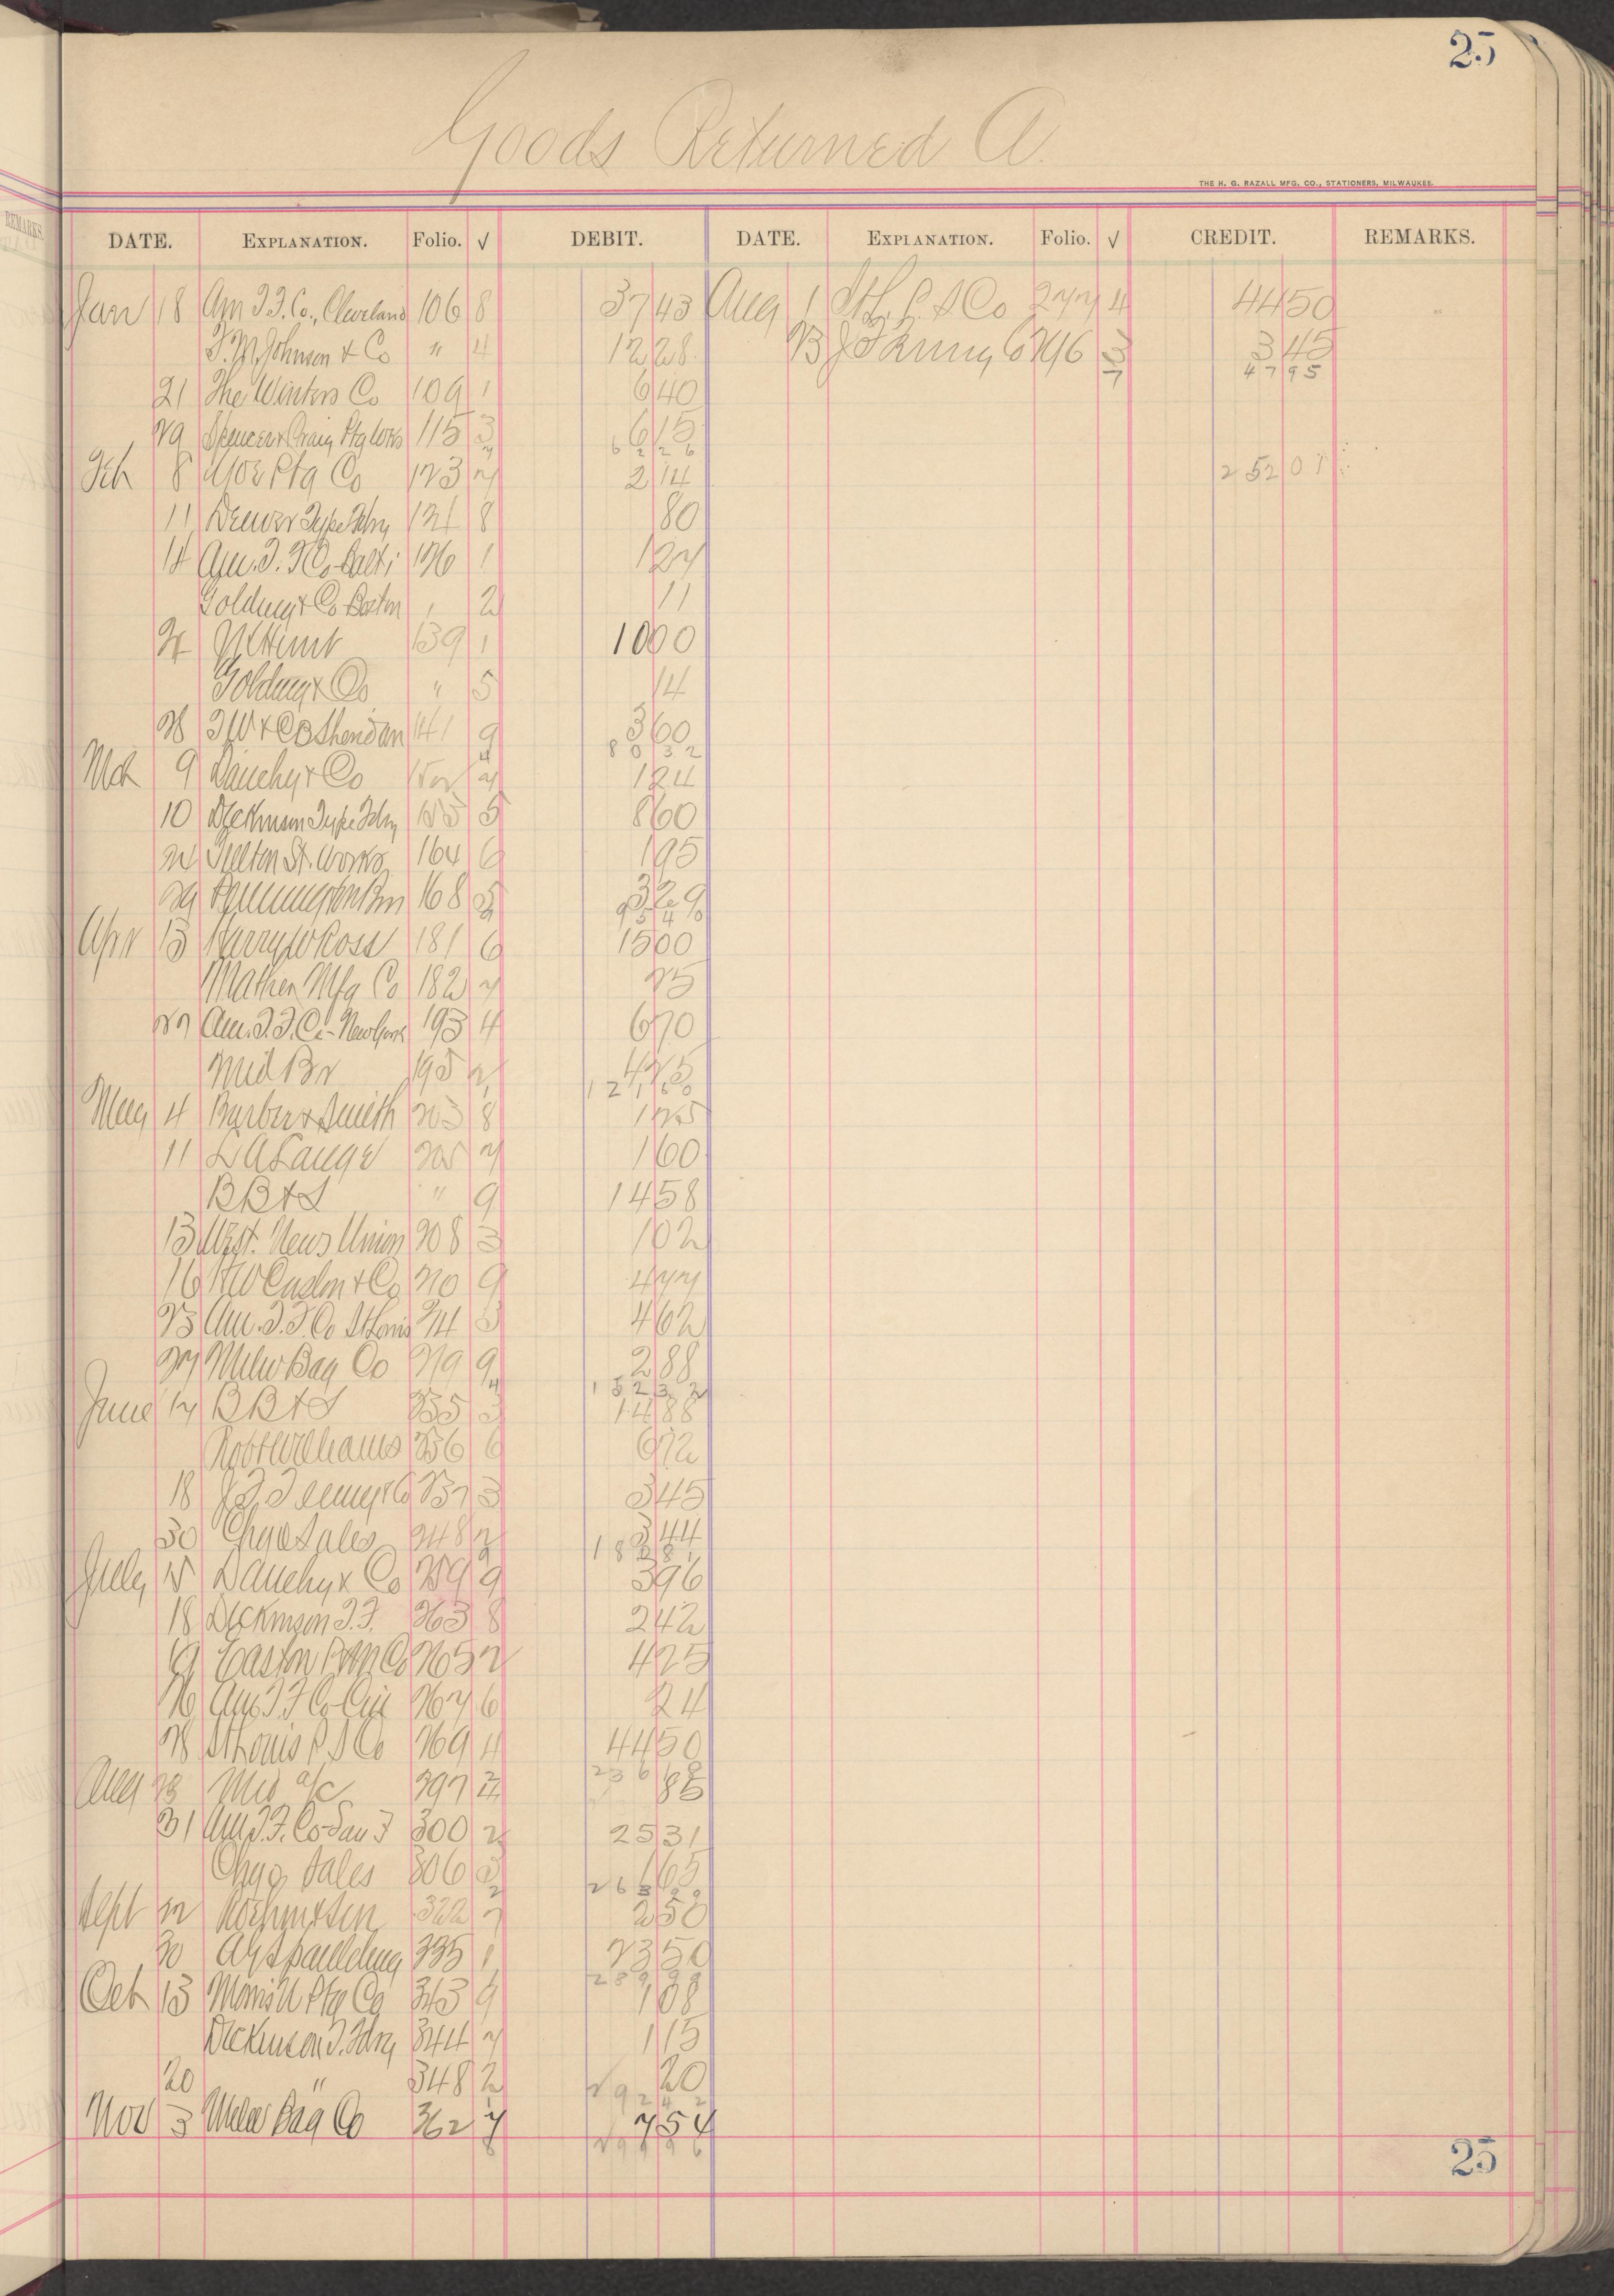 25
Goods Returned A.
THE H. G. RAZALL MFG. CO., STATIONERS, MILWAUKEE.
REMARKS.
DATE. EXPLANATION. Folio. √ DEBIT. DATE. EXPLANATION. Folio. √ CREDIT. REMARKS.
Jan 18 Am T.F. Co., Cleveland 106 8 37 43 Aug 1 St L. P. S Co 277 4 44 50
Johnson & Co " 4 12 28 3 45
47 95
21 The Winters Co 109 1 6 40
29 Spencer & Craig Ptg Wks 115 3 6 15
62 26
Feb 8 Ptg Co 123 7 2 14 252 01
11 Denver Type Fdry 121 8 80
14 Am. T. F Co Balti 126 1 1 27
Golding & Co Boston 2 11
24 Hunt 139 1 10 00
Golding & Co " 5 14
28 T W & C B Sheridan 141 9 3 60
80 32
Mch 9 Dauchy & Co 152 7 1 24
10 Dickinson Type Fdry 155 5 8 60
22 Tilton St. Works 164 6 1 95
29 168 5 3 29
95 40
Apr 13 Harry W Ross 181 6 15 00
Mather Mfg Co 182 7 75
27 Am. T. F. Co - New York 193 4 6 70
Mid Br 195 2 4 25
May 4 Barber & Smith 203 8 1 25
11 L A Lange 205 7 1 60
B B & S " 9 14 58
13 West. News Union 208 3 1 02
16 Co 210 9 4 77
23 Am. T. F. Co St Louis 214 3 4 62
27 Milw Bag Co 219 9 2 88
152 32
June 17 B B & S 235 3 14 88
Robt Williams 236 6 6 72
18 237 3 3 45
30 Chgo Sales 248 2 3 44
180 81
July 15 Dauchy & Co 259 9 3 96
18 Dickinson T. F. 263 8 2 42
19 Easton Co 265 2 4 25
26 Am T F Co Cin 267 6 24
28 St Louis P S Co 269 4 44 50
236 18
Aug 23 Mid a/c 297 85
31 Am T. F. Co San F 300 2 25 31
Chgo Sales 306 3 1 65
263 99
Sept 12 322 7 2 50
30 A G Spaulding 335 1 23 50
289 99
Oct 13 Ptg Co 343 9 1 08
Dickinson T. Fdry 344 7 1 15
20 " 348 2 20
292 42
Nov 3 Milw Bag Co 362 7 7 54
299 96
25